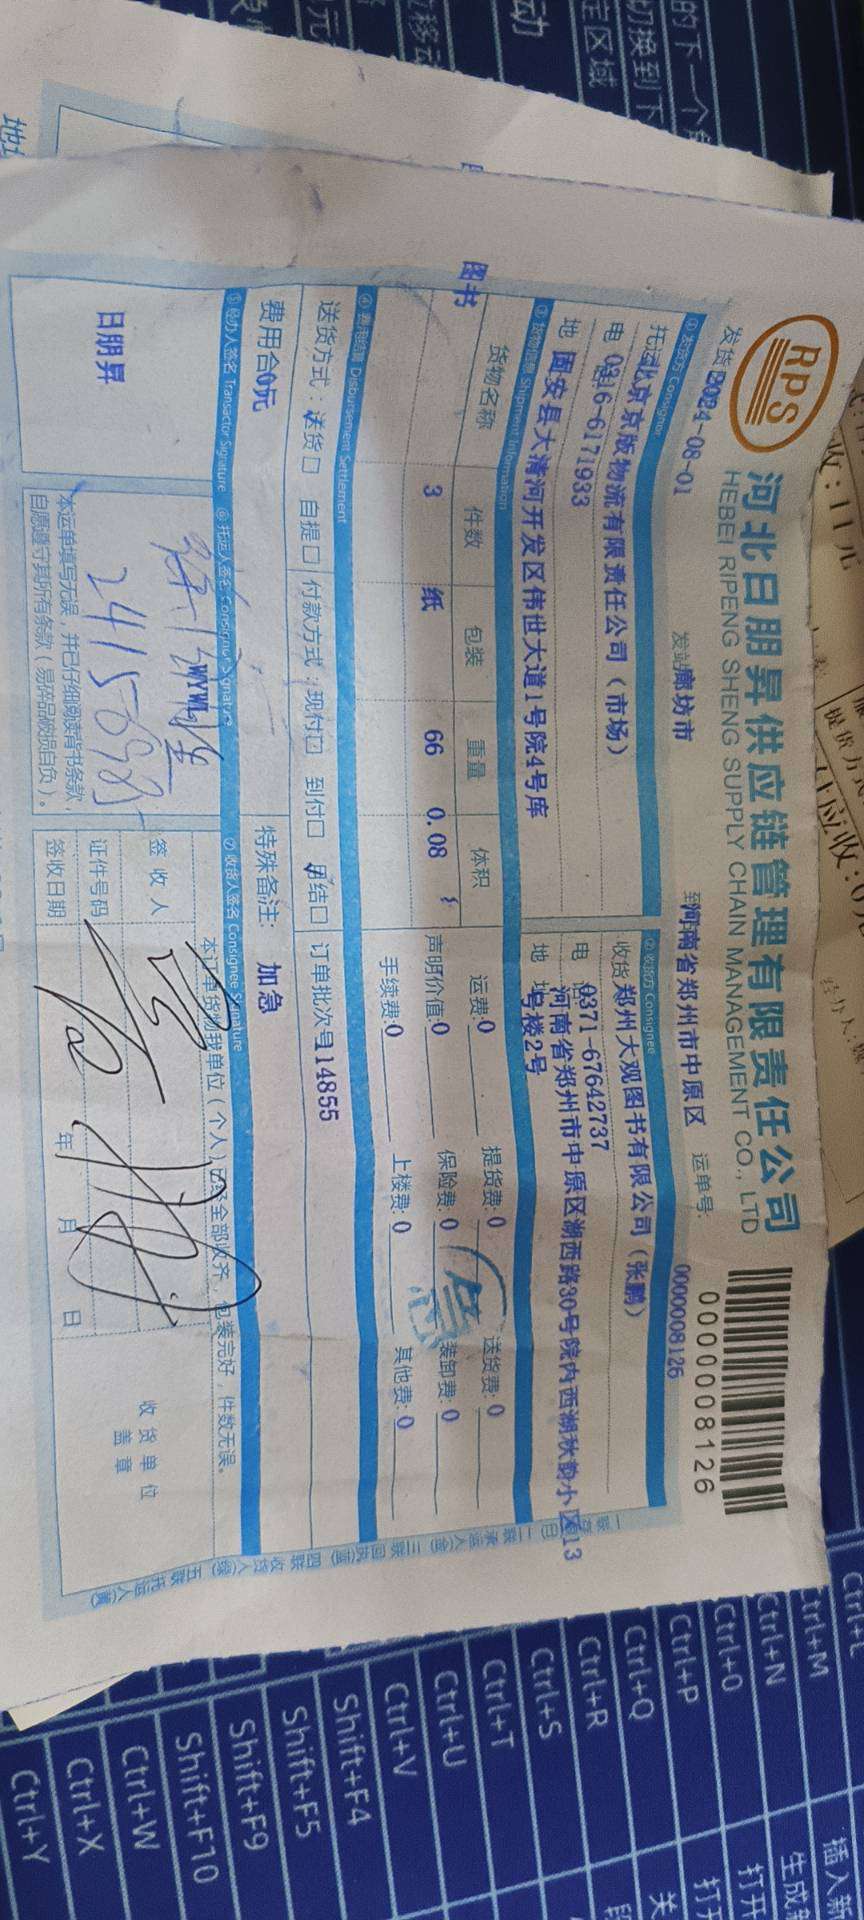 RPS
河北日朋昇供应链管理有限责任公司
HEBEI RIPENG SHENG SUPPLY CHAIN MANAGEMENT CO., LTD
0000008126
发货 2024-08-01 发站 廊坊市 到 河南省郑州市中原区 运单号: 0000008126
① 发货方 Consignor ② 收货方 Consignee
托运 北京京版物流有限责任公司（市场） 收货 郑州大观图书有限公司（张鹏）
电 0316-6171933 电 0371-67642737
地 固安县大清河开发区伟世大道1号院4号库 地 河南省郑州市中原区湖西路30号院内西湖秋韵小区13
号楼2号
③ 货物信息 Shipment Information
货物名称 件数 包装 重量 体积 运费:0 提货费:0 送货费:0
图书 3 纸 66 0.08 声明价值:0 保险费:0 装卸费:0
手续费:0 上楼费:0 其他费:0
④ 费用结算 Disbursement Settlement
送货方式：送货□ 自提□ 付款方式：现付□ 到付□ 月结□ 订单批次号14855
费用合0元 特殊备注: 加急
⑤ 经办人签名 Transactor Signature ⑥ 托运人签名 Consignor Signature ⑦ 收货人签名 Consignee Signature
日朋昇
WYWL
本运单填写无误，并已仔细阅读背书条款，
自愿遵守其所有条款（易碎品破损自负）。
本订单货物我单位（个人）已经全部收齐，包装完好，件数无误。
签收人
证件号码
签收日期 年 月 日
收货单位
盖章
二联承运人(金) 三联回执(蓝) 四联收货人(绿) 五联托运人(黄)
Ctrl+M
Ctrl+N
Ctrl+O
Ctrl+P
Ctrl+Q
Ctrl+R
Ctrl+S
Ctrl+T
Ctrl+U
Ctrl+V
Shift+F4
Shift+F5
Shift+F9
Shift+F10
Ctrl+W
Ctrl+X
Ctrl+Y
插入新
生成新
打开
打开
关
的下一个
切换到下
定区域